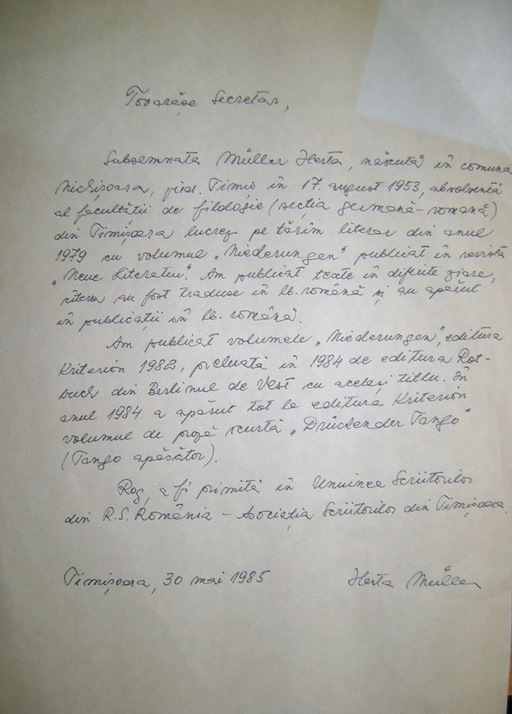 Tovarășe Secretar,
Subsemnata Müller Herta, născută în comuna
Nichișoara, jud. Timiș în 17. august 1953, absolventă
al facultății de filologie (secția germană-română)
din Timișoara lucrez pe tărîm literar din anul
1979 cu volumul „Niederungen" publicat în revista
„Neue Literatur". Am publicat texte în diferite ziare,
cîteva au fost traduse în lb. română și au apărut
în publicații în lb. română.
Am publicat volumele „Niederungen", editura
Kriterion 1982, preluată în 1984 de editura Rot-
buch din Berlinul de Vest cu același titlu. În
anul 1984 a apărut tot la editura Kriterion
volumul de proză scurtă „Drückender Tango"
(Tango apăsător).
Rog, a fi primită în Uniunea Scriitorilor
din R.S. România - Asociația Scriitorilor din Timișoara.
Timișoara, 30 mai 1985 Herta Müller